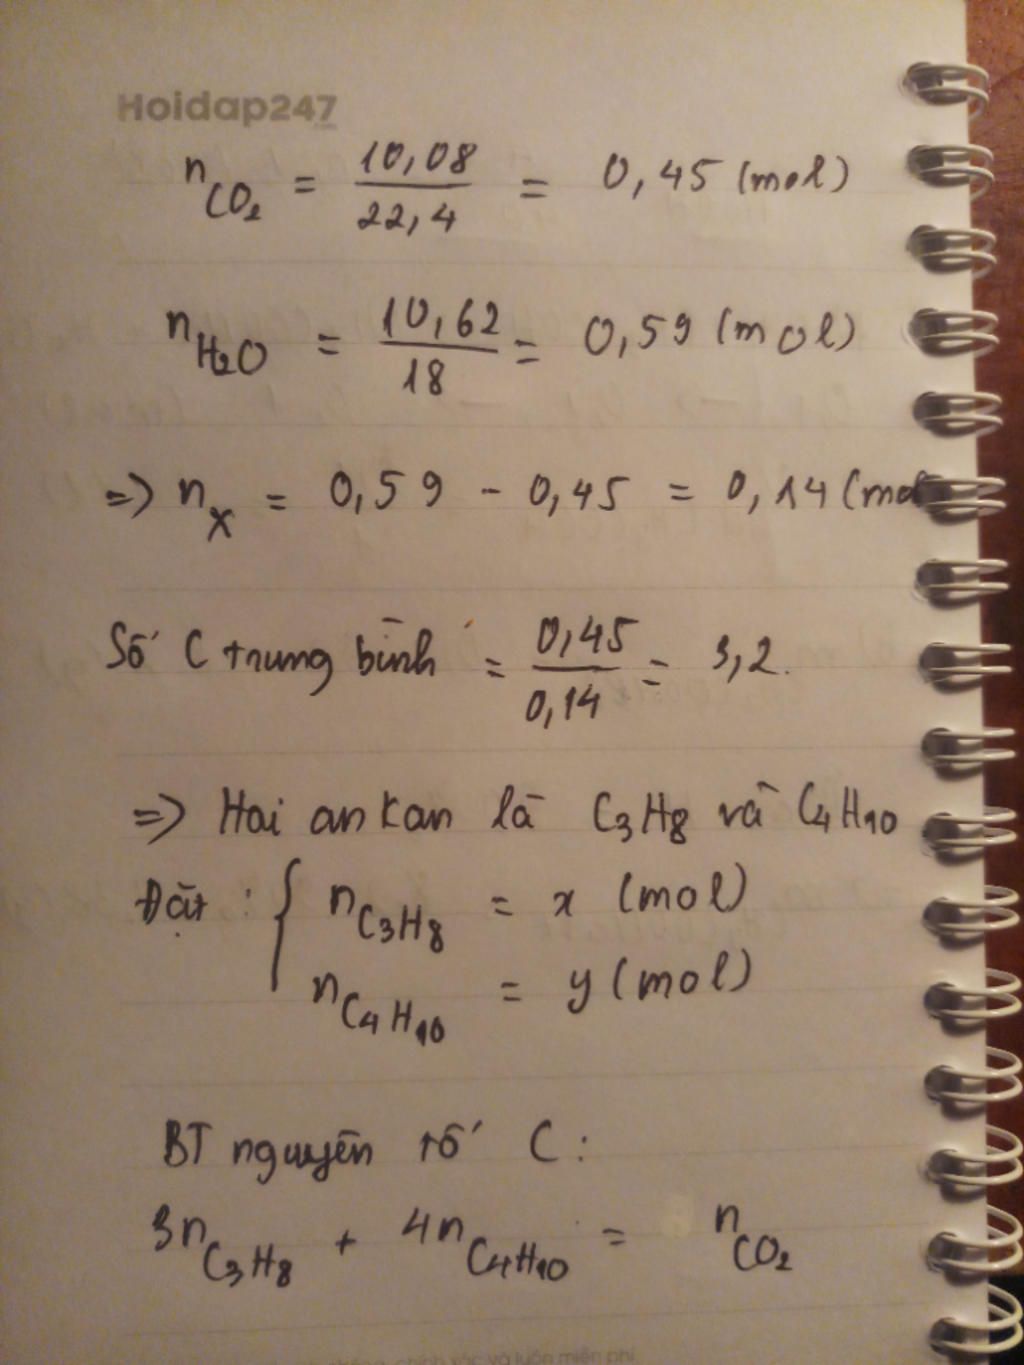 Hoidap247
n_CO₂ = 10,08/22,4 = 0,45 (mol)
n_H₂O = 10,62/18 = 0,59 (mol)
=> n_X = 0,59 - 0,45 = 0,14 (mol
Số C trung bình = 0,45/0,14 = 3,2.
=> Hai ankan là C₃H₈ và C₄H₁₀
Đặt : { n_C₃H₈ = x (mol)
n_C₄H₁₀ = y (mol)
BT nguyên tố C :
3n_C₃H₈ + 4n_C₄H₁₀ = n_CO₂
chính xác và luôn miễn phí